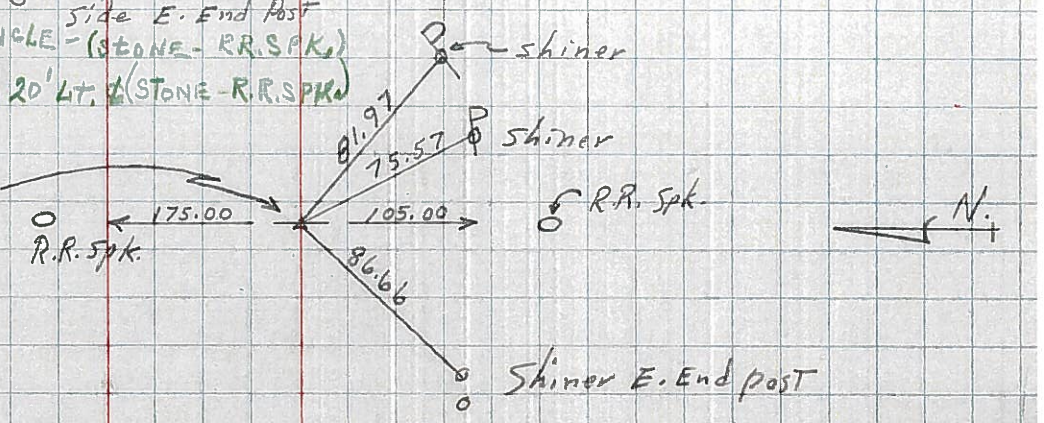 Side E. End Post
(STONE - RR.SPK.)
20' Lt. (STONE - R.R.SPK.)
P
shiner
81.97
P
75.57
shiner
R.R. Spk.
175.00
105.00
N.
R.R. Spk.
86.66
Shiner E. End post